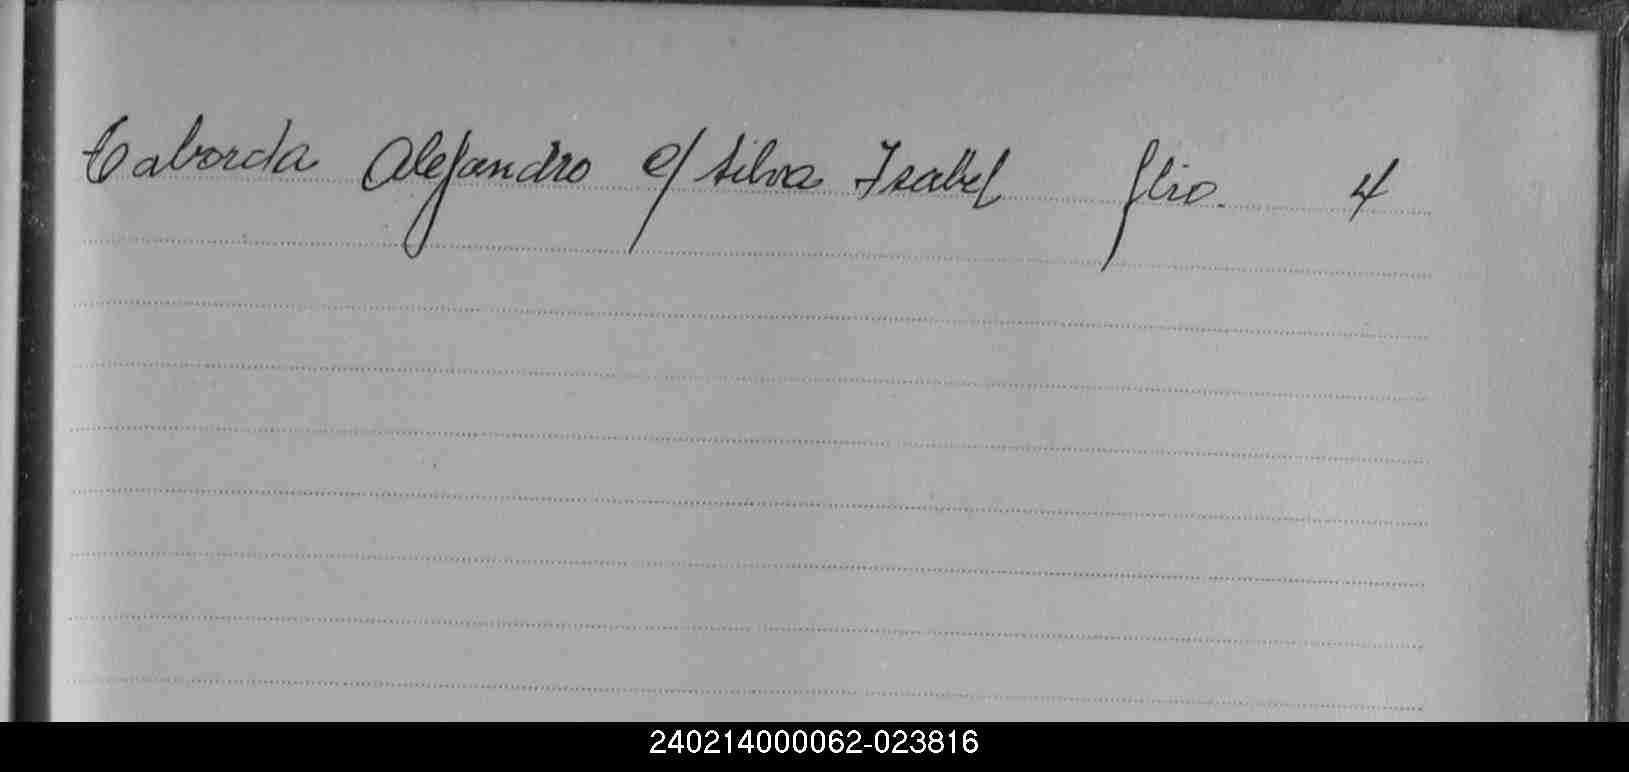 Taborda Alejandro c/ Silva Isabel flio. 4
240214000062-023816